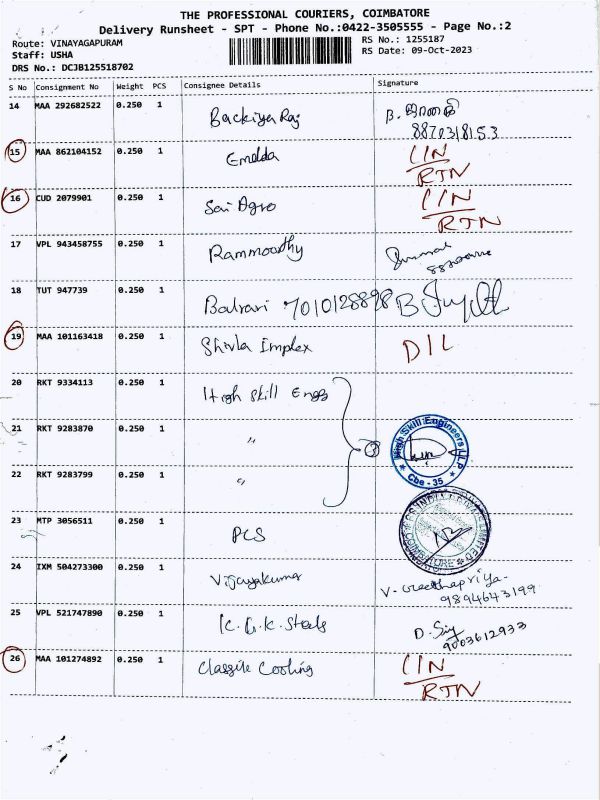 THE PROFESSIONAL COURIERS, COIMBATORE
Delivery Runsheet - SPT - Phone No.:0422-3505555 - Page No.:2
Route: VINAYAGAPURAM
Staff: USHA
DRS No.: DCJB125518702
RS No.: 1255187
RS Date: 09-Oct-2023
S No Consignment No Weight PCS Consignee Details Signature
14 MAA 292682522 0.250 1 Backiya Raj B.
8870318153
15 MAA 862104152 0.250 1 Emelda LIN
RTN
16 CUD 2079901 0.250 1 Sai Agro LIN
RTN
17 VPL 943458755 0.250 1 Rammoorthy
18 TUT 947739 0.250 1 7010128898 B
19 MAA 101163418 0.250 1 Shivla Implex D I L
20 RKT 9334113 0.250 1 High Skill Engg
21 RKT 9283870 0.250 1 "
3
High Skill Engineers LLP
Cbe - 35
22 RKT 9283799 0.250 1 "
23 MTP 3056511 0.250 1 PCS
COIMBATORE
24 IXM 504273300 0.250 1 Vijayakumar V. Geethapriya-
9894643199
25 VPL 521747890 0.250 1 K.G.K. Steels D.
9003612933
26 MAA 101274892 0.250 1 Cooling LIN
RTN